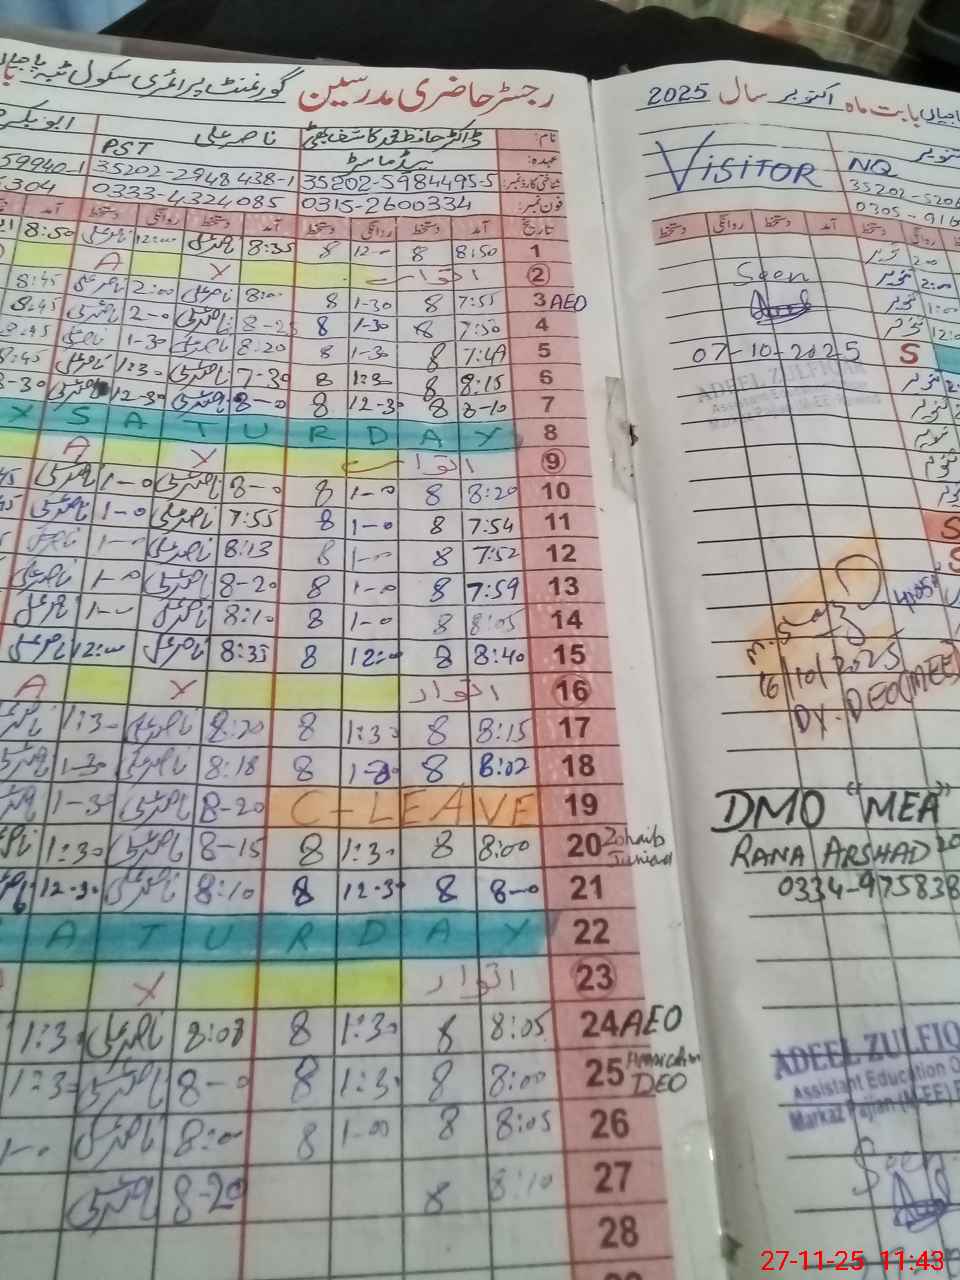 رجسٹر حاضری مدرسین گورنمنٹ پرائمری سکول
نام: ڈاکٹر حافظ محمد کاشف بھٹی ناصر علی ابوبکر
عہدہ: ہیڈ ماسٹر PST
شناختی کارڈ نمبر: 35202-5984495-5 35202-2948438-1 59940-1
فون نمبر: 0315-2600334 0333-4324085 304
تاریخ آمد دستخط روانگی دستخط آمد دستخط روانگی دستخط آمد
1 8:50 8 12-0 8 8:35 ناصر علی 12:00 ناصر علی 8:50
2 اتوار X A
3 AEO 7:55 8 1-30 8 8:00 ناصر علی 2:00 ناصر علی 8:45
4 7:50 8 1-30 8 8-25 ناصر علی 2-0 ناصر علی 8:45
5 7:49 8 1-30 8 8:20 ناصر علی 1-30 ناصر علی 8:45
6 8:15 8 1:30 8 7-30 ناصر علی 1:30 ناصر علی 8:45
7 8-10 8 12-30 8 8-0 ناصر علی 12-30 ناصر علی 8-30
8 SATURDAY
9 اتوار X A
10 8:20 8 1-0 8 8-0 ناصر علی 1-0 ناصر علی 45
11 7:54 8 1-0 8 7:55 ناصر علی 1-0 ناصر علی 45
12 7:52 8 1-0 8 8:13 ناصر علی 1-0 ناصر علی
13 7:59 8 1-0 8 8-20 ناصر علی 1-0 ناصر علی
14 8:05 8 1-0 8 8:10 ناصر علی 1-0 ناصر علی
15 8:40 8 12:0 8 8:35 ناصر علی 12:00 ناصر علی
16 اتوار X A
17 8:15 8 1:30 8 8:20 ناصر علی 1:30 ناصر علی
18 8:02 8 1-30 8 8:18 ناصر علی 1-30 ناصر علی
19 C-LEAVE 8-20 ناصر علی 1-30
20 Zohaib Junaid 8:00 8 1:30 8 8-15 ناصر علی 1:30
21 8-0 8 12-30 8 8:10 ناصر علی 12-30
22 ATURDAY
23 اتوار X
24 AEO 8:05 8 1:30 8 8:08 ناصر علی 1:30
25 DEO 8:00 8 1:30 8 8-0 ناصر علی 1:30
26 8:05 8 1-00 8 8:00 ناصر علی 1-0
27 8:10 8 8-20 ناصر علی
28
بابت ماہ اکتوبر سال 2025
VISITOR
NQ
35202-5206
0305-916
دستخط روانگی دستخط آمد دستخط روانگی
Seen
07-10-2025
ADEEL ZULFIQAR
Assistant Education
S
2:00
1:00
16/10/2025
DY. DEO (MEE)
DMO "MEA"
RANA ARSHAD
0334-975838
ADEEL ZULFIQ
Assistant Education O
Markaz Pajian (M-EE)
Seen
27-11-25 11:43